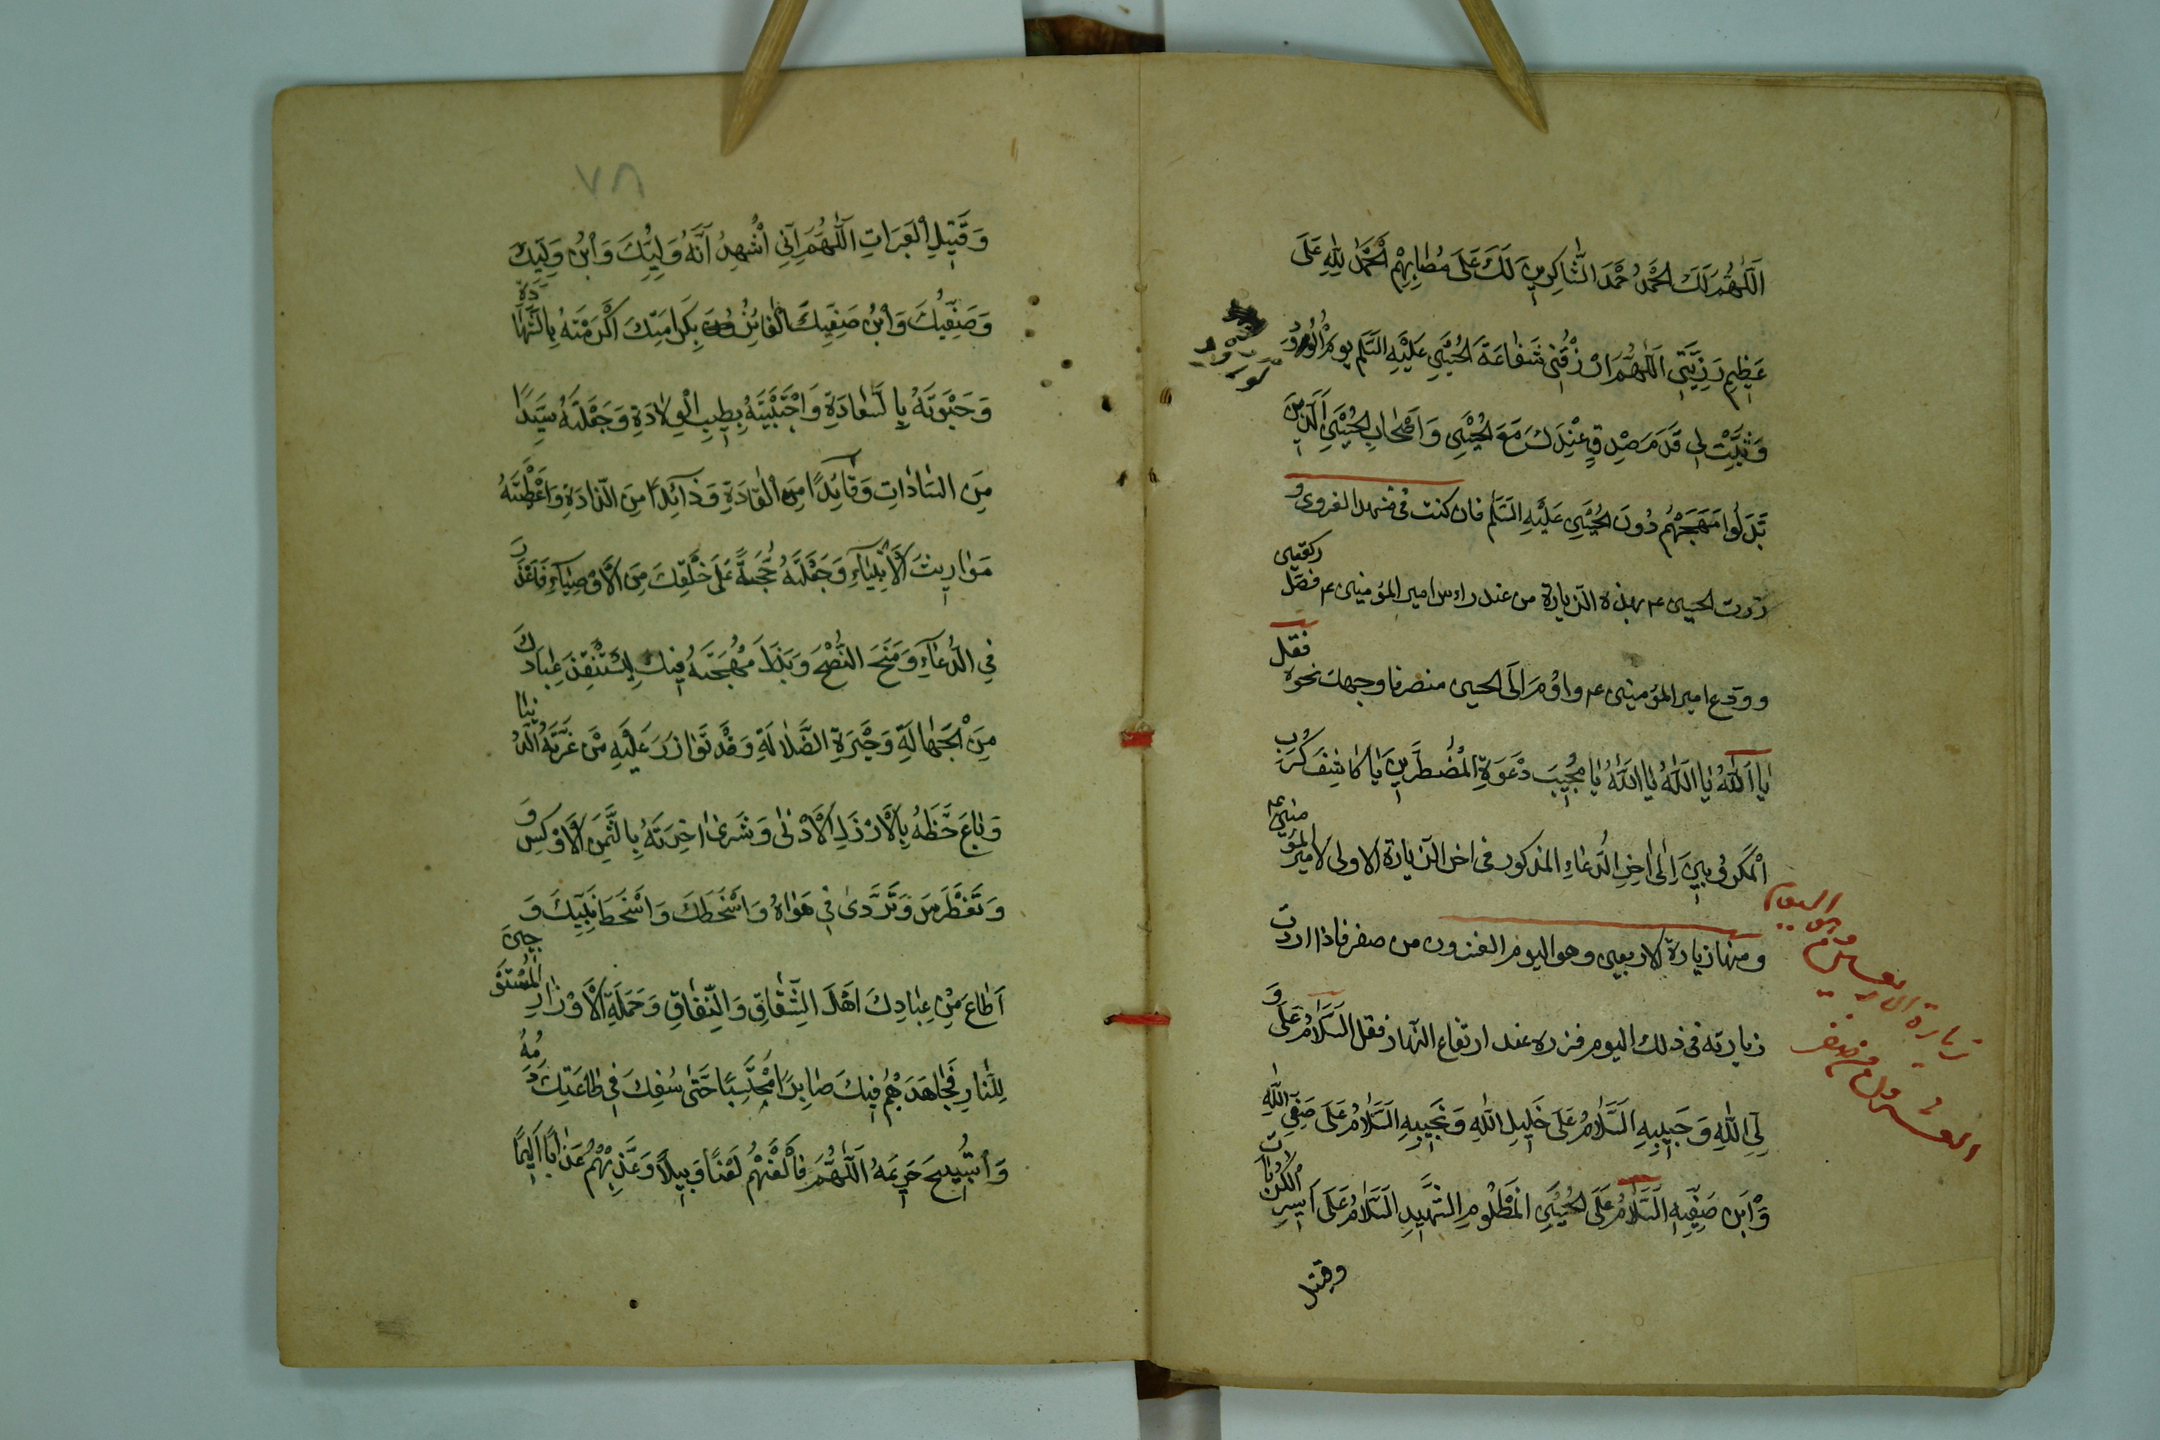 اَللّٰهُمَّ لَكَ الْحَمْدُ حَمْدَ الشَّاكِرِينَ لَكَ عَلَى مُصَابِهِمْ اَلْحَمْدُ لِلّٰهِ عَلَى
عَظِيمِ رَزِيَّتِي اَللّٰهُمَّ ارْزُقْنِي شَفَاعَةَ الْحُسَيْنِ عَلَيْهِ السَّلَمُ يَوْمَ الْوُرُودِ
وَثَبِّتْ لِي قَدَمَ صِدْقٍ عِنْدَكَ مَعَ الْحُسَيْنِ وَاَصْحَابِ الْحُسَيْنِ اَلَّذِينَ
بَذَلُوا مُهَجَهُمْ دُونَ الْحُسَيْنِ عَلَيْهِ السَّلَمُ فان كنت فى مشهد الغروى و
زرت الحسين ع بهذه الزيارة من عند راس امير المؤمنين ع فصلّ ركعتين
وودّع امير المؤمنين ع واوْمَ الَى الحسين منصرفا وجهك نحوه فقل
يَا اَللّٰهُ يَا اَللّٰهُ يَا اَللّٰهُ يَا مُجِيبَ دَعْوَةِ الْمُضْطَرِّينَ يَا كَاشِفَ كُرَبِ
الْمَكْرُوبِينَ اِلَى اٰخِرِ الدُّعَاءِ المذكور فى اخر الزيارة الاولى لامير المؤمنين ع
ومنها زيارة الاربعين وهو اليوم العشرون من صفر فاذا اردت
زيارته فى ذلك اليوم فزره عند ارتفاع النّهار فقل اَلسَّلَامُ عَلَى وَ
لِيِّ اللّٰهِ وَحَبِيبِهِ اَلسَّلَامُ عَلَى خَلِيلِ اللّٰهِ وَنَجِيبِهِ اَلسَّلَامُ عَلَى صَفِيِّ اللّٰهِ
وَابْنِ صَفِيِّهِ اَلسَّلَامُ عَلَى الْحُسَيْنِ الْمَظْلُومِ الشَّهِيدِ اَلسَّلَامُ عَلَى اَسِيرِ الْكُرُبَاتِ
وقتيل
زيارة الاربعين
العشرون من صفر
٧٨
وَقَتِيلِ الْعَبَرَاتِ اَللّٰهُمَّ اِنِّي اَشْهَدُ اَنَّهُ وَلِيُّكَ وَابْنُ وَلِيِّكَ
وَصَفِيُّكَ وَابْنُ صَفِيِّكَ الْفَائِزُ بِكَرَامَتِكَ اَكْرَمْتَهُ بِالشَّهَادَةِ
وَحَبَوْتَهُ بِالسَّعَادَةِ وَاجْتَبَيْتَهُ بِطِيبِ الْوِلَادَةِ وَجَعَلْتَهُ سَيِّدًا
مِنَ السَّادَاتِ وَقَائِدًا مِنَ الْقَادَةِ وَذَائِدًا مِنَ الذَّادَةِ وَاَعْطَيْتَهُ
مَوَارِيثَ الْاَنْبِيَاءِ وَجَعَلْتَهُ حُجَّةً عَلَى خَلْقِكَ مِنَ الْاَوْصِيَاءِ فَاَعْذَرَ
فِي الدُّعَاءِ وَمَنَحَ النُّصْحَ وَبَذَلَ مُهْجَتَهُ فِيكَ لِيَسْتَنْقِذَ عِبَادَكَ
مِنَ الْجَهَالَةِ وَحَيْرَةِ الضَّلَالَةِ وَقَدْ تَوَازَرَ عَلَيْهِ مَنْ غَرَّتْهُ الدُّنْيَا
وَبَاعَ حَظَّهُ بِالْاَرْذَلِ الْاَدْنٰى وَشَرَىٰ اٰخِرَتَهُ بِالثَّمَنِ الْاَوْكَسِ وَ
وَتَغَطْرَسَ وَتَرَدَّى فِي هَوَاهُ وَاَسْخَطَكَ وَاَسْخَطَ نَبِيَّكَ وَ
اَطَاعَ مِنْ عِبَادِكَ اَهْلَ الشِّقَاقِ وَالنِّفَاقِ وَحَمَلَةَ الْاَوْزَارِ الْمُسْتَوْجِبِينَ
لِلنَّارِ فَجَاهَدَهُمْ فِيكَ صَابِرًا مُحْتَسِبًا حَتّٰى سُفِكَ فِي طَاعَتِكَ دَمُهُ
وَاسْتُبِيحَ حَرِيمُهُ اَللّٰهُمَّ فَالْعَنْهُمْ لَعْنًا وَبِيلًا وَعَذِّبْهُمْ عَذَابًا اَلِيمًا